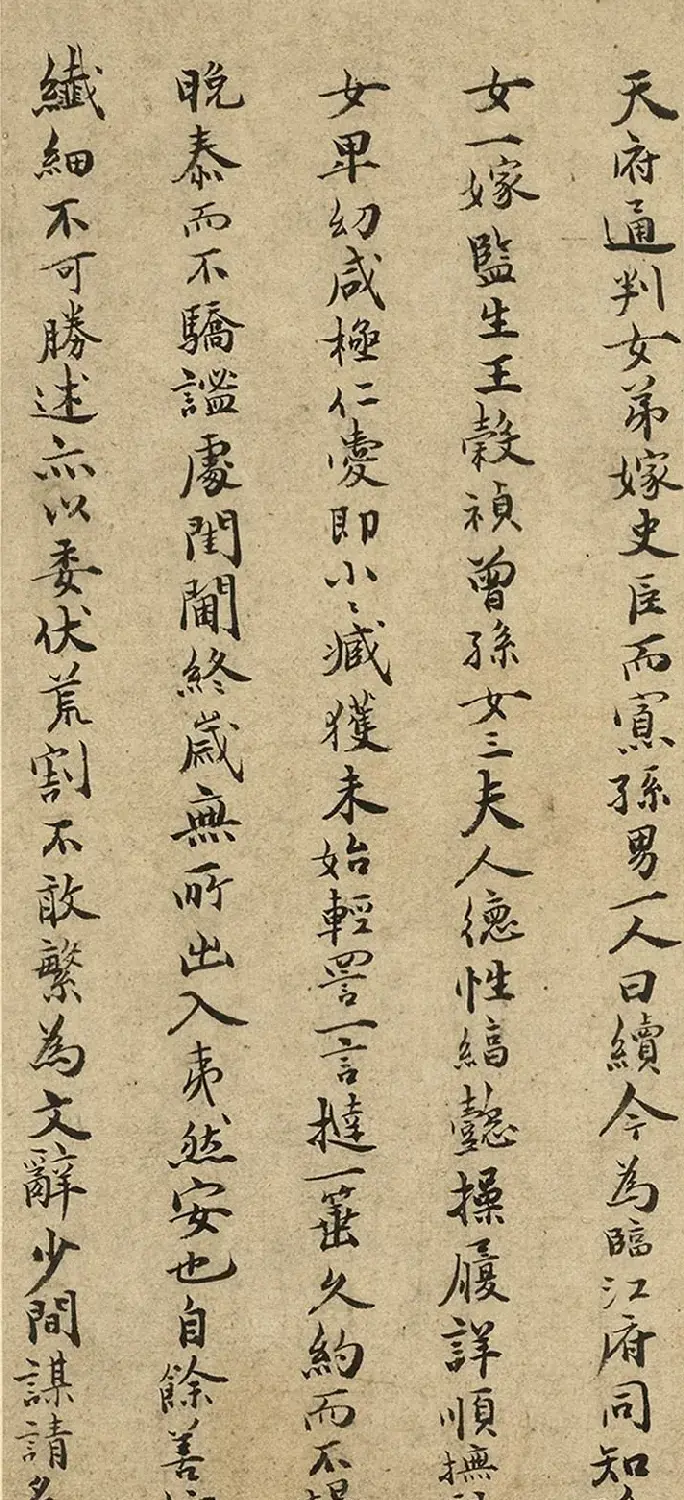 天府通判女弟嫁史臣而寡孫男一人曰續今為臨江府同知
女一嫁監生王穀禎曾孫女三夫人德性縞懿操履詳順撫
女卑幼咸極仁愛即小〻臧獲未始輕詈一言撻一箠久約而不
晚泰而不驕謐處閨閫終歲無所出入夷然安也自餘善
纖細不可勝述亦以委伏荒割不敢繁為文辭少間謀請